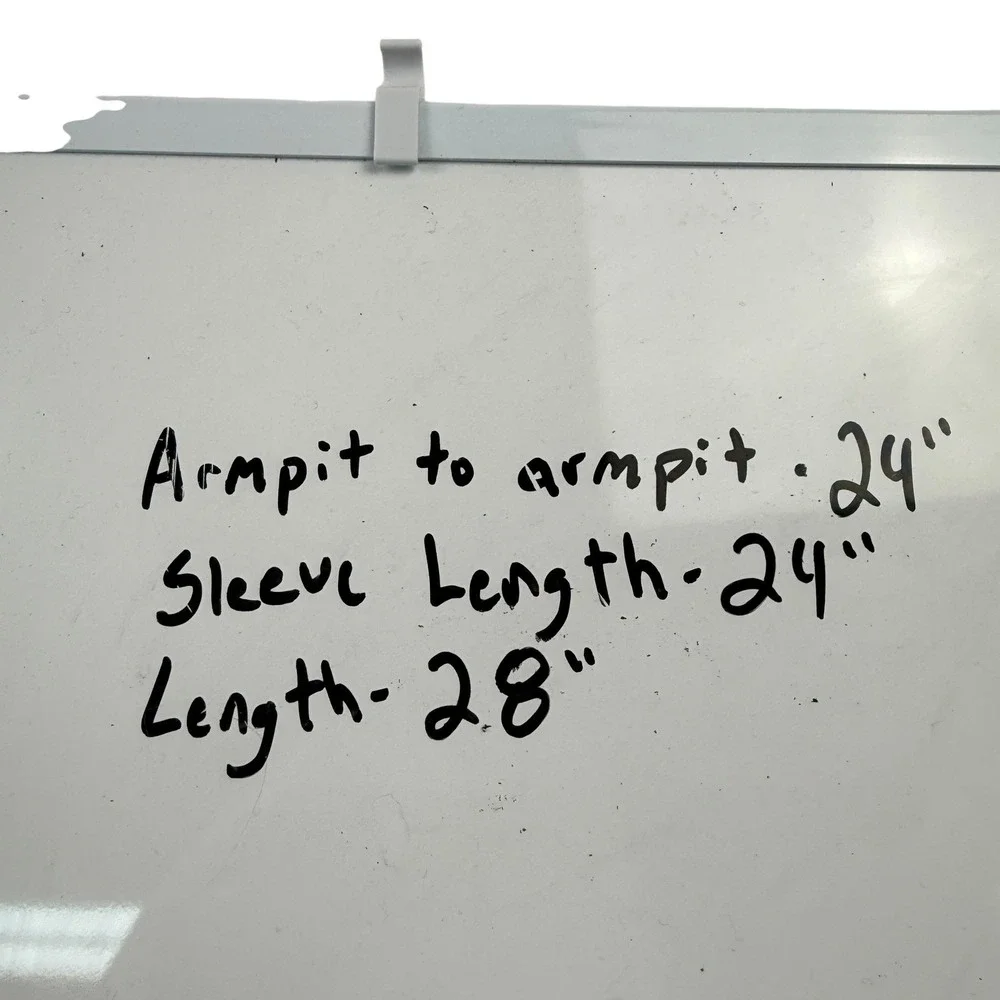 Armpit to armpit - 24"
Sleeve Length - 24"
Length - 28"